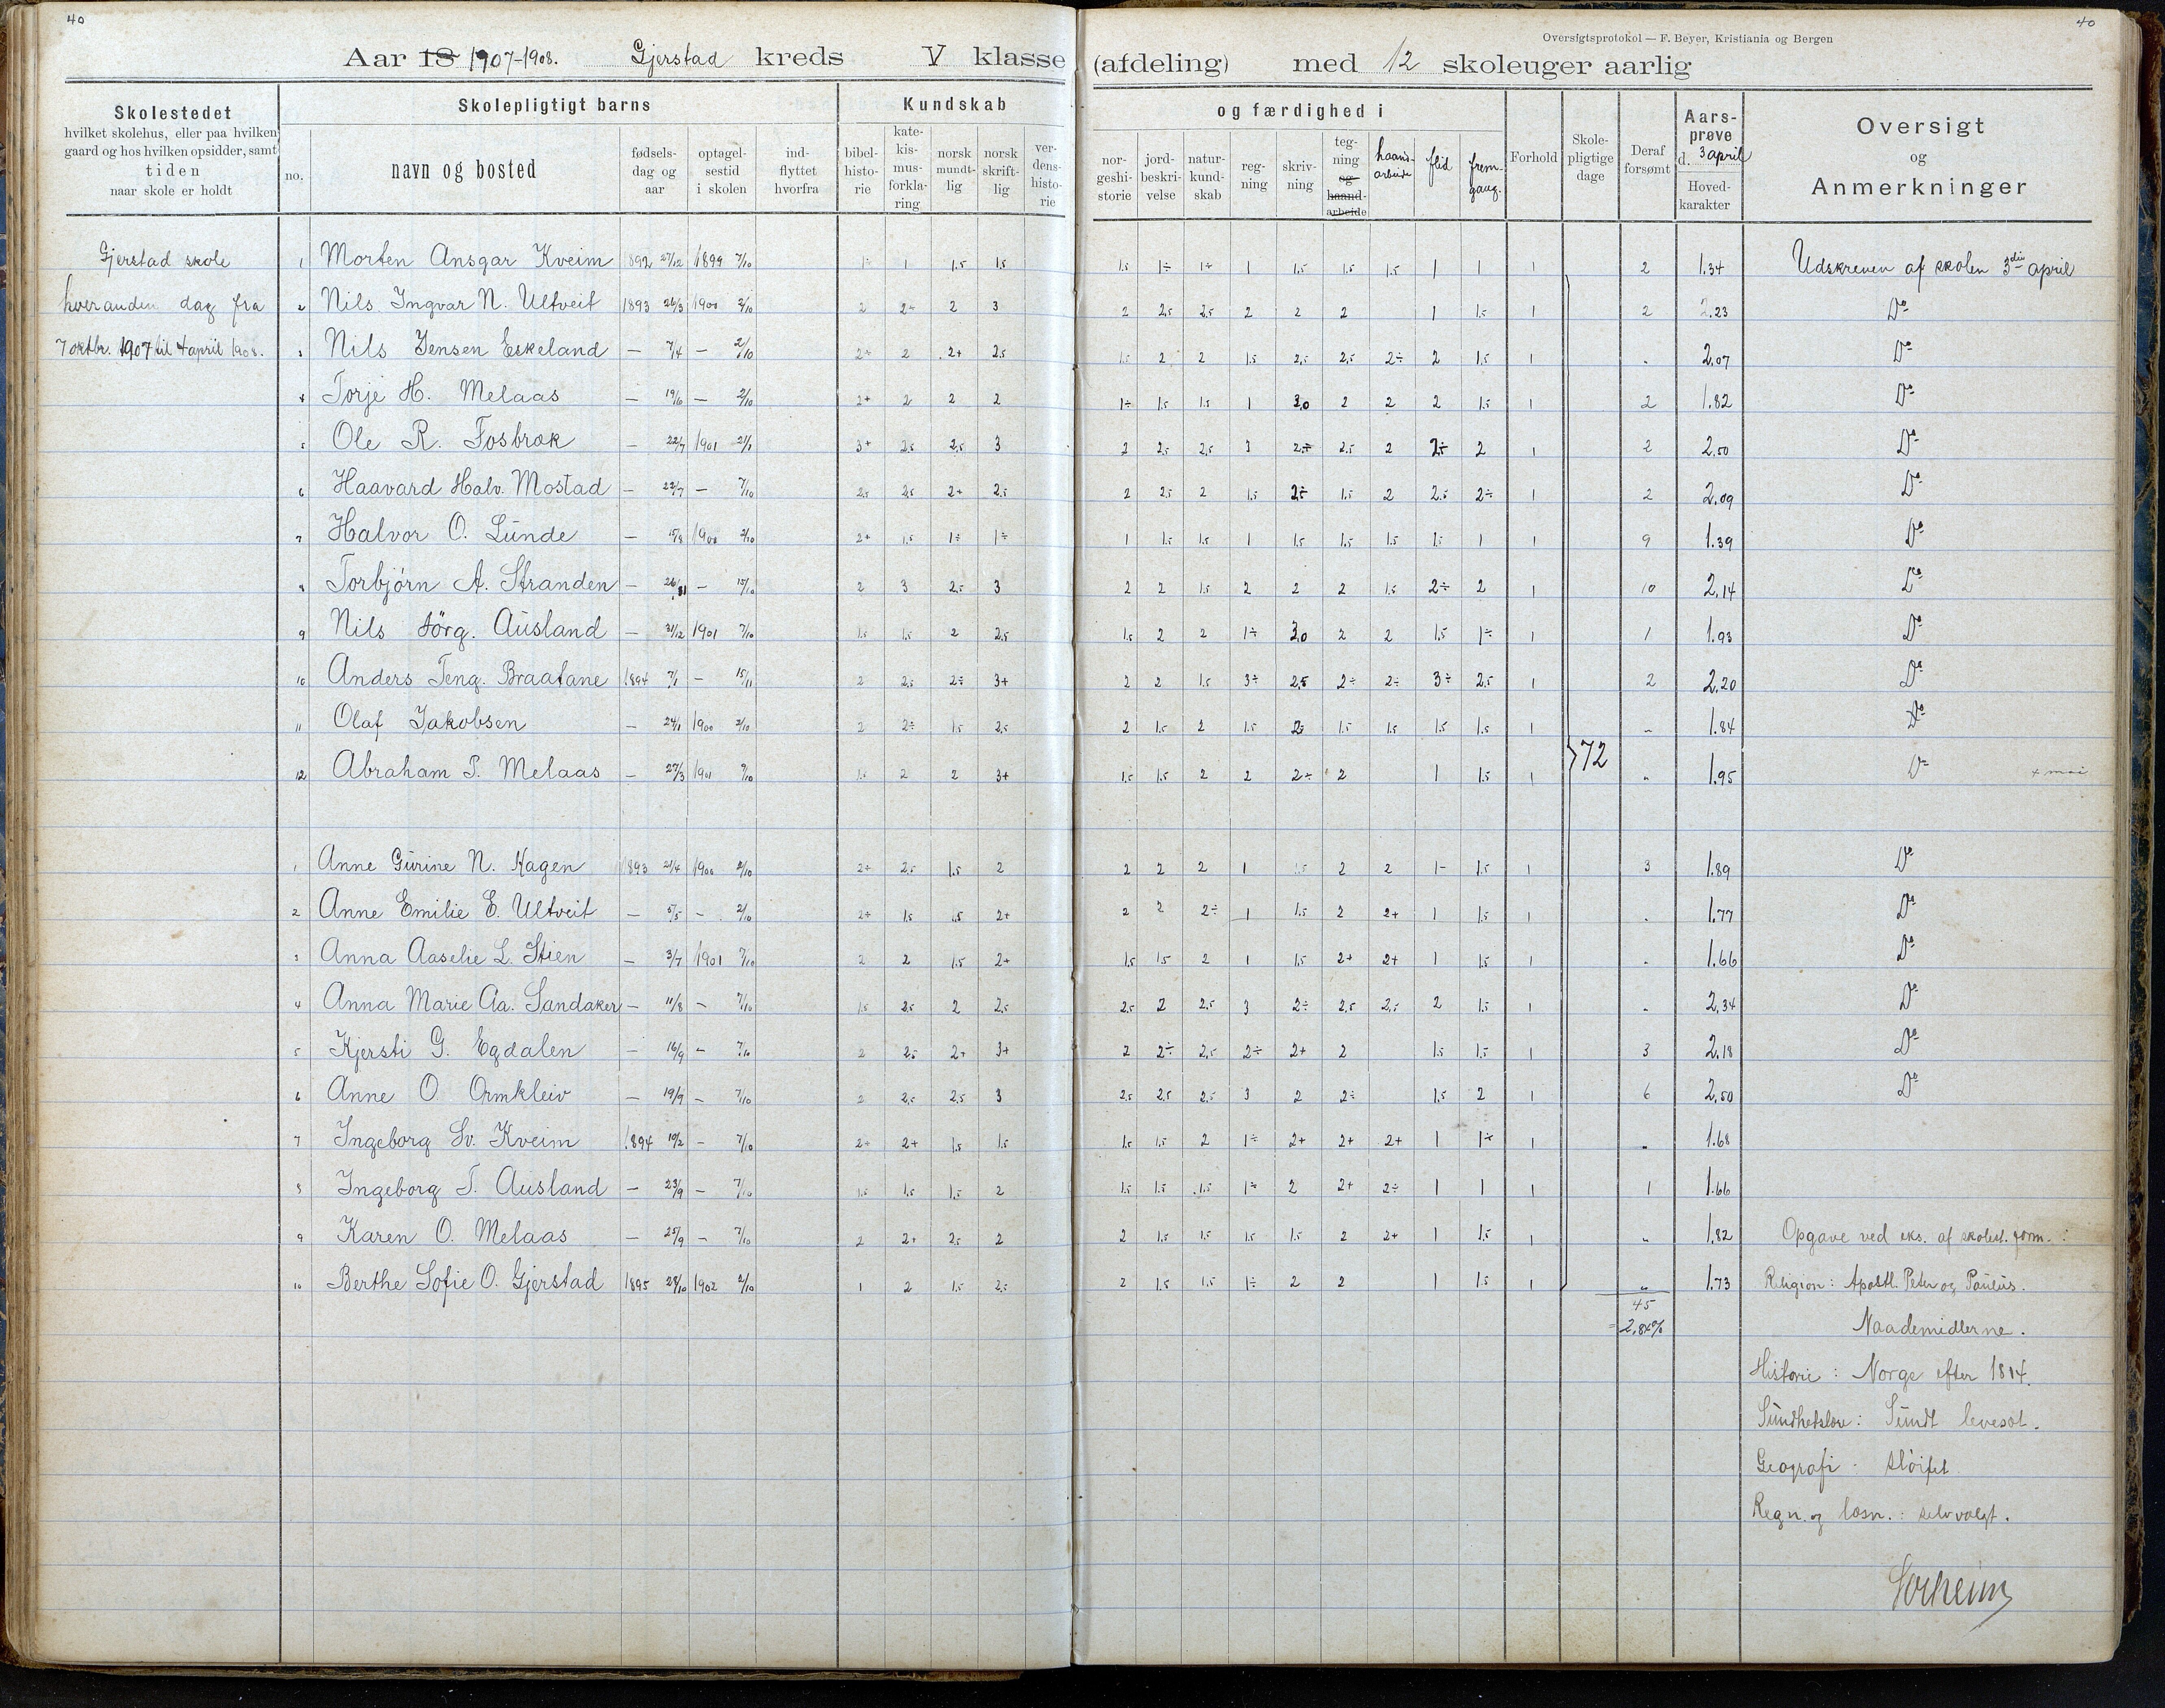 40
40
Oversigtsprotokol — F. Beyer, Kristiania og Bergen
Aar 18 1907-1908. Gjerstad kreds V klasse (afdeling) med 12 skoleuger aarlig
Skolestedet
hvilket skolehus, eller paa hvilken
gaard og hos hvilken opsidder, samt
tiden
naar skole er holdt
Skolepligtigt barns
no. navn og bosted
fødselsdag og aar
optagelsestid i skolen
indflyttet hvorfra
Kundskab og færdighed i
bibelhistorie
katekismusforklaring
norsk mundtlig
norsk skriftlig
verdenshistorie
norgeshistorie
jordbeskrivelse
naturkundskab
regning
skrivning
tegning og haandarbeide
haandarbeide
flid
fremgang.
Forhold
Skolepligtige dage
Deraf forsømt
Aarsprøve d. 3 april
Hovedkarakter
Oversigt
og
Anmerkninger
Gjerstad skole
hveranden dag fra
7 oktbr. 1907 til 4 april 1908.
1 Morten Ansgar Kveim 1892 27/12 1899 7/10 1÷ 1 1.5 1.5 1.5 1÷ 1÷ 1 1.5 1.5 1.5 1 1 1 2 1.34 Udskreven af skolen 3die april
2 Nils Ingvar N. Ultveit 1893 26/3 1900 2/10 2 2÷ 2 3 2 2,5 2,5 2 2 2 1 1.5 1 2 2.23 Do
3 Nils Jensen Eskeland — 7/4 — 2/10 2÷ 2 2+ 2,5 1.5 2 2 1.5 2,5 2,5 2÷ 2 1.5 1 „ 2.07 Do
4 Torje H. Melaas — 19/6 — 2/10 2+ 2 2 2 1÷ 1.5 1.5 1 3,0 2 2 2 1.5 1 2 1.82 Do
5 Ole R. Fosbræk — 22/7 1901 21/1 3+ 2,5 2,5 3 2 2,5 2,5 3 2÷ 2.5 2 2÷ 2 1 2 2.50 Do
6 Haavard Halv. Mostad — 22/7 — 7/10 2,5 2,5 2+ 2,5 2 2,5 2 1.5 2÷ 1.5 2 2.5 2÷ 1 2 2.09 Do
7 Halvor O. Lunde — 15/8 1900 2/10 2+ 1.5 1÷ 1÷ 1 1.5 1.5 1 1.5 1.5 1.5 1.5 1 1 9 1.39 Do
8 Torbjörn A. Stranden — 26/11 — 15/10 2 3 2,5 3 2 2 1.5 2 2 2 1.5 2÷ 2 1 10 2.14 Do
9 Nils Jörg. Ausland — 31/12 1901 7/10 1.5 1.5 2 2,5 1.5 2 2 1÷ 3,0 2 2 1.5 1÷ 1 1 1.93 Do
10 Anders Teng. Braatane 1894 7/1 — 15/11 2 2,5 2÷ 3+ 2 2 1.5 3÷ 2,5 2÷ 2÷ 3÷ 2,5 1 2 2.20 Do
11 Olaf Jakobsen — 24/1 1900 2/10 2 2÷ 1.5 2,5 2 1.5 2 1.5 2,5 1.5 1.5 1.5 1.5 1 „ 1.84 Do
12 Abraham T. Melaas — 27/3 1901 9/10 1.5 2 2 3+ 1.5 1.5 2 2 2÷ 2 1 1.5 1 72 „ 1.95 Do + mai
1 Anne Gurine N. Hagen 1893 21/4 1900 2/10 2+ 2,5 1.5 2 2 2 2 1 1.5 2 2 1- 1.5 1 3 1.89 Do
2 Anne Emilie E. Ultveit — 5/5 — 2/10 2÷ 1.5 1.5 2+ 2 2 2÷ 1 1.5 2 2+ 1 1.5 1 „ 1.77 Do
3 Anna Aaselie L. Stien — 3/7 1901 7/10 2 2 1.5 2+ 1.5 1.5 2 1 1.5 2+ 2+ 1 1.5 1 „ 1.66 Do
4 Anna Marie Aa. Sandaker — 11/8 — 7/10 1.5 2,5 2 2,5 2,5 2 2,5 3 2÷ 2,5 2,5 2 1.5 1 „ 2.34 Do
5 Kjersti G. Egdalen — 16/9 — 7/10 2 2,5 2+ 3+ 2 2÷ 2,5 2÷ 2+ 2 1.5 1.5 1 3 2.18 Do
6 Anne O. Ormkleiv — 19/9 — 7/10 2 2,5 2,5 3 2,5 2,5 2,5 3 2 2÷ 1.5 2 1 6 2.50 Do
7 Ingeborg Sv. Kveim 1894 10/2 — 7/10 2+ 2+ 1.5 1.5 1.5 1.5 2 1÷ 2+ 2+ 2+ 1 1÷ 1 „ 1.68
8 Ingeborg T. Ausland — 23/9 — 7/10 1.5 1.5 1.5 2 1.5 1.5 1.5 1÷ 2 2+ 2÷ 1 1 1 1 1.66
9 Karen O. Melaas — 25/9 — 7/10 2 2+ 2,5 2 2 1.5 1.5 1.5 1.5 2 2+ 1 1.5 1 „ 1.82 Opgave ved eks. af skolest. form. :
10 Berthe Sofie O. Gjerstad 1895 28/10 1902 2/10 1 2 1.5 2,5 2 1.5 1.5 1÷ 2 2 1 1.5 1 „ 1.73 Religion: Apostl. Peter og Paulus.
45
= 2,84% Naademidlerne.
Historie: Norge efter 1814.
Sundhetslære: Sundt levesæt.
Geografi: sløifet
Regn. og læsn.: selvvalgt.